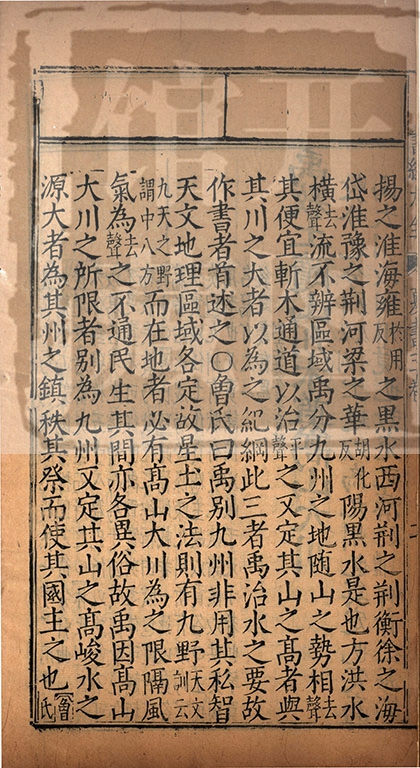 揚之淮海雍於用反之黒水西河荆之荆衡徐之海
岱淮豫之荆河梁之華胡化反陽黒水是也方洪水
橫去聲流不辨區域禹分九州之地随山之勢相去聲
其便宜斬木通道以治平聲之又定其山之髙者與
其川之大者以為之紀綱此三者禹治水之要故
作書者首述之〇曾氏曰禹别九州非用其私智
天文地理區域各定故星土之法則有九野天文訓云
九天之野謂中八方而在地者必有髙山大川為之限隔風
氣為去聲之不通民生其間亦各異俗故禹因髙山
大川之所限者别為九州又定其山之髙峻水之
源大者為其州之鎮秩其祭而使其國主之也曾氏